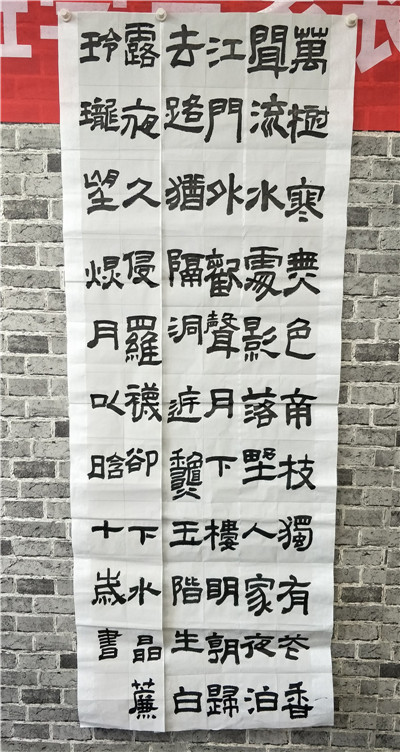 萬樹寒無色南枝獨有花香
聞流水處影落野人家夜泊
江門外歡聲月下樓明朝歸
去路猶隔洞庭龝玉階生白
露夜久侵羅襪卻下水晶簾
玲瓏望秌月以晗十歲書